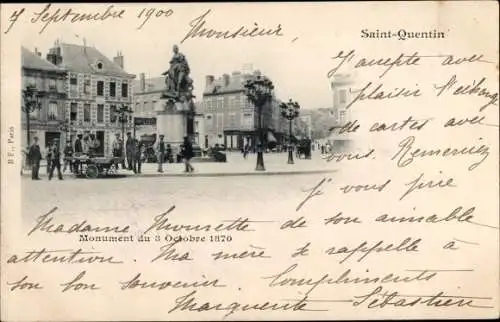 7 Septembre 1900
Monsieur
Saint-Quentin
J'accepte avec
plaisir l'échange
de cartes avec
vous. Remerciez
je vous prie
Madame Mousette de son aimable
attention. Ma mère se rappelle à
son bon souvenir Compliments
Marguerite Sébastien
Monument du 8 Octobre 1870
B F, Paris